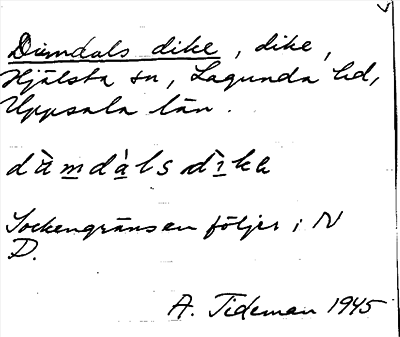 Dumdals dike, dike,
Hjälsta sn, Lagunda hd,
Uppsala län.
dù̱m̱dà̱ls dì̱kə
Sockengränsen följer i N
D.
A. Tideman 1945